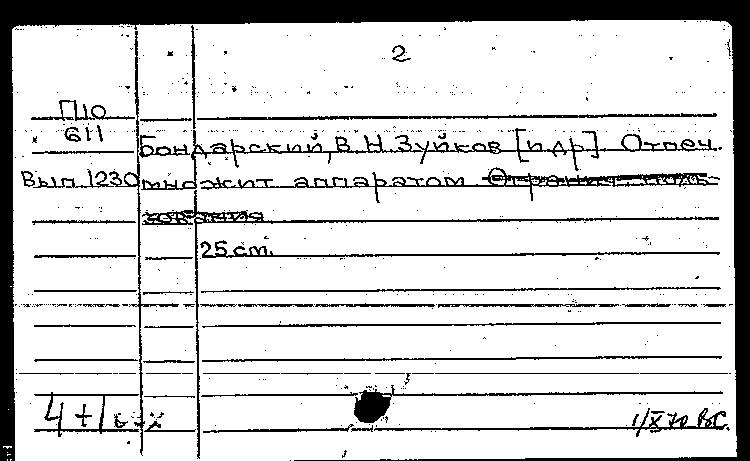 2
П10
611
Бондарский, В. Н. Зуйков [и др]. Отпеч.
Вып. 1230 множит аппаратом Огранич. поль-
зования
25 см.
4+1
1/X 70 ВС.